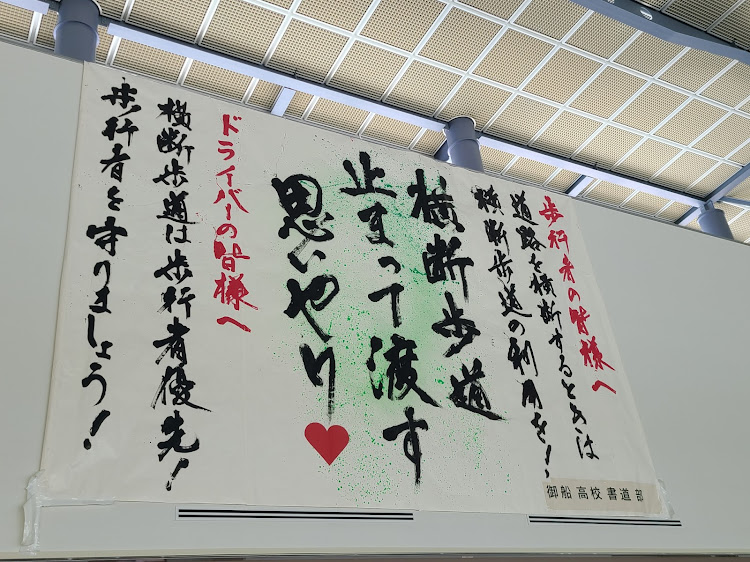 歩行者の皆様へ
道路を横断するときは
横断歩道の利用を!
横断歩道
止まって渡す
思いやり
ドライバーの皆様へ
横断歩道は歩行者優先!
歩行者を守りましょう!
御船高校書道部